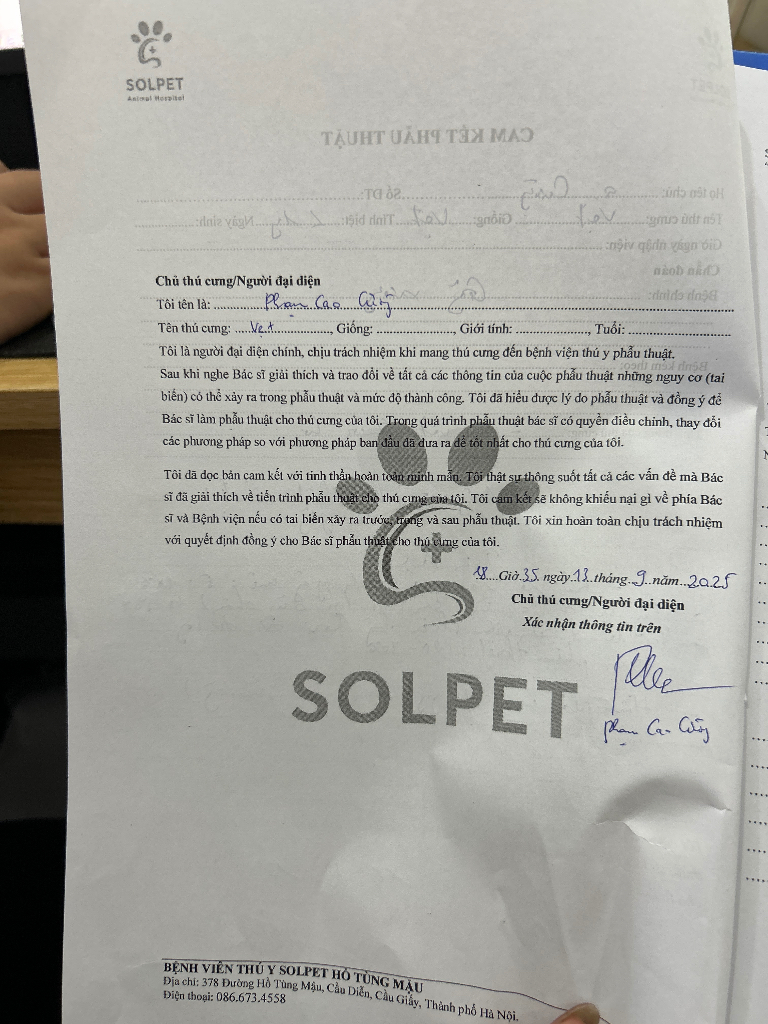 SOLPET
Animal Hospital
CAM KẾT PHẪU THUẬT
Họ tên chủ: Số ĐT:
Tên thú cưng: Vẹt Giống: Vẹt Tính biệt: Ngày sinh:
Giờ ngày nhập viện:
Chẩn đoán
Bệnh chính:
Bệnh kèm theo:
Chủ thú cưng/Người đại diện
Tôi tên là: Phạm Cao Cường
Tên thú cưng: Vẹt, Giống: , Giới tính: , Tuổi:
Tôi là người đại diện chính, chịu trách nhiệm khi mang thú cưng đến bệnh viện thú y phẫu thuật.
Sau khi nghe Bác sĩ giải thích và trao đổi về tất cả các thông tin của cuộc phẫu thuật những nguy cơ (tai
biến) có thể xảy ra trong phẫu thuật và mức độ thành công. Tôi đã hiểu được lý do phẫu thuật và đồng ý để
Bác sĩ làm phẫu thuật cho thú cưng của tôi. Trong quá trình phẫu thuật bác sĩ có quyền điều chỉnh, thay đổi
các phương pháp so với phương pháp ban đầu đã đưa ra để tốt nhất cho thú cưng của tôi.
Tôi đã đọc bản cam kết với tinh thần hoàn toàn minh mẫn. Tôi thật sự thông suốt tất cả các vấn đề mà Bác
sĩ đã giải thích về tiến trình phẫu thuật cho thú cưng của tôi. Tôi cam kết sẽ không khiếu nại gì về phía Bác
sĩ và Bệnh viện nếu có tai biến xảy ra trước, trong và sau phẫu thuật. Tôi xin hoàn toàn chịu trách nhiệm
với quyết định đồng ý cho Bác sĩ phẫu thuật cho thú cưng của tôi.
18 Giờ 35 ngày 13 tháng 9 năm 2025
Chủ thú cưng/Người đại diện
Xác nhận thông tin trên
SOLPET
Phạm Cao Cường
BỆNH VIỆN THÚ Y SOLPET HỒ TÙNG MẬU
Địa chỉ: 378 Đường Hồ Tùng Mậu, Cầu Diễn, Cầu Giấy, Thành phố Hà Nội.
Điện thoại: 086.673.4558